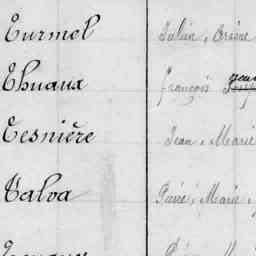 Turmel Julien, Arsène
Thuaux François Jean
Tesnière Jean, Marie
Talva Pierre, Marie,